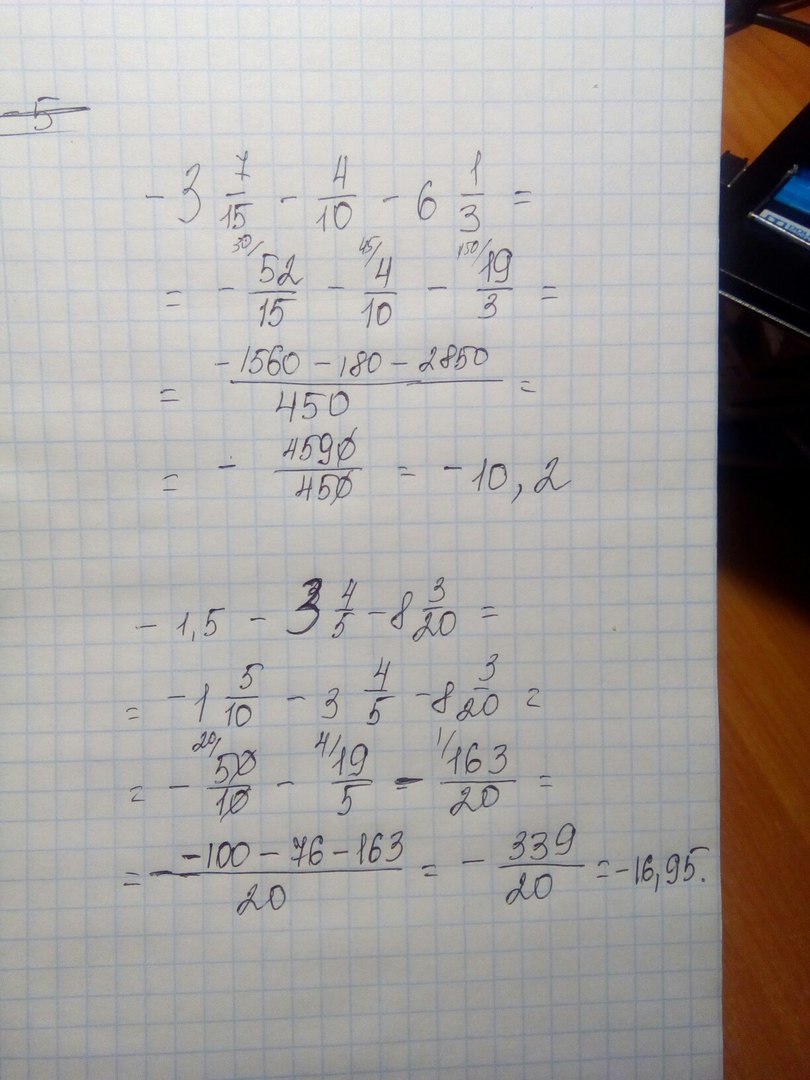 -5
- 3 7/15 - 4/10 - 6 1/3 =
= - 30/ 52/15 - 45/ 4/10 - 150/ 19/3 =
= (-1560 - 180 - 2850)/450 =
= - 4590/450 = - 10,2
- 1,5 - 3 4/5 - 8 3/20 =
= - 1 5/10 - 3 4/5 - 8 3/20 =
= - 20/ 50/10 - 4/ 19/5 - 1/ 163/20 =
= (-100 - 76 - 163)/20 = - 339/20 = -16,95.